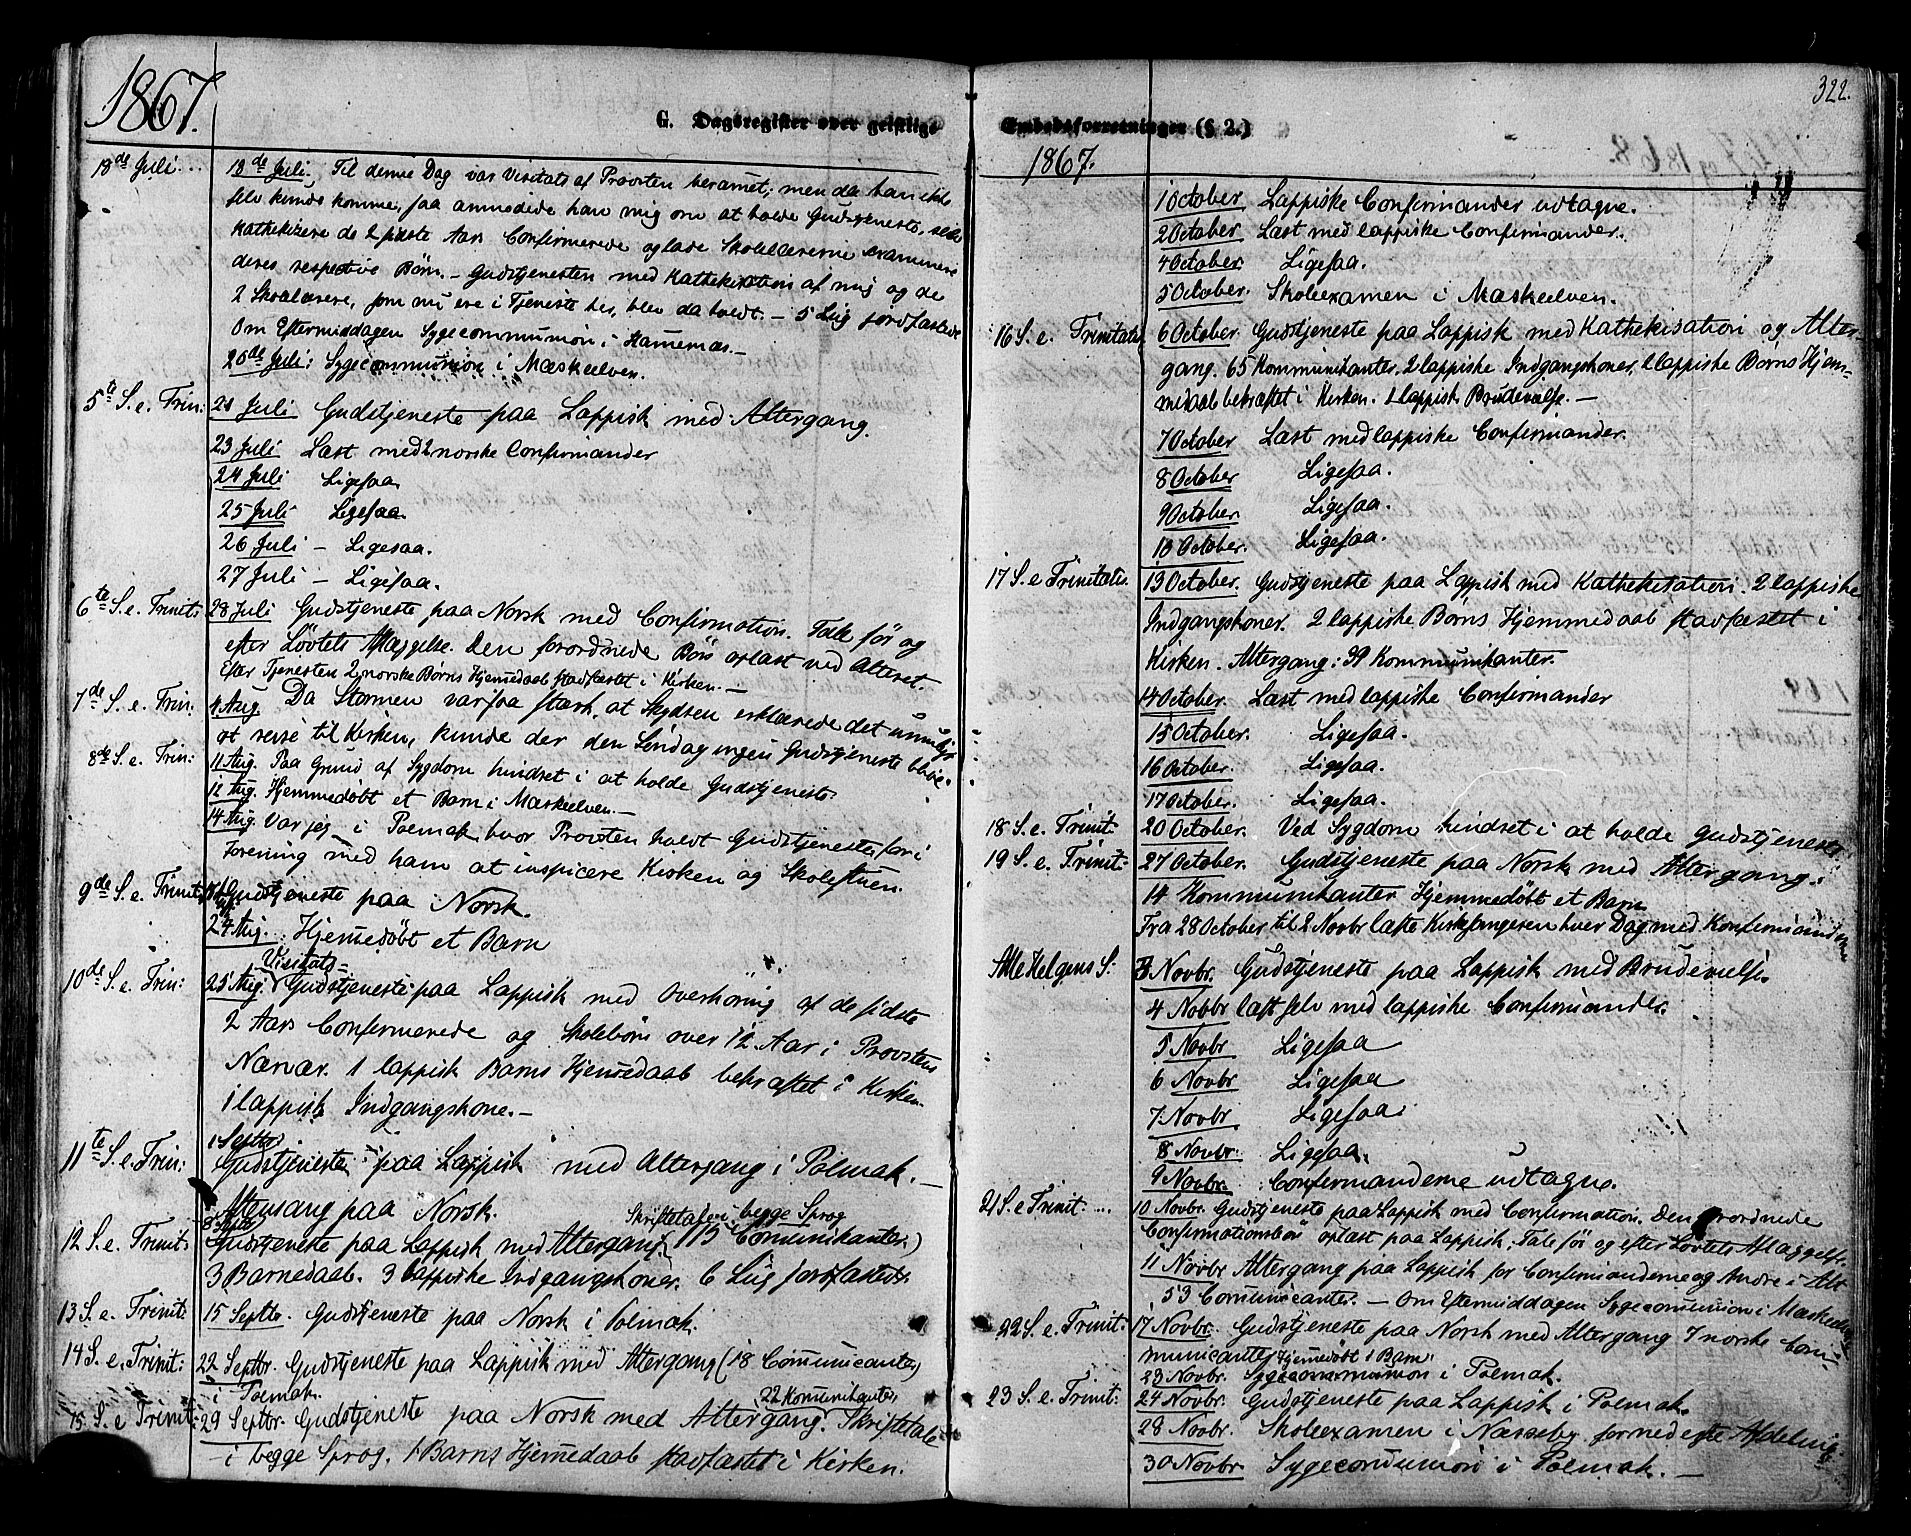 1867.
G. Dagsregister over geistlige
18de Juli... 18de Juli. Til denne Dag var Visitats af Provsten berammet; men da han ikke
selv kunde komme, saa anmodede han mig om at holde Gudstjeneste, selv
kathekisere de 2 sidste Aars Confirmerede og lade Skolelærerne examinere
deres respective Børn. – Gudstjenesten med Kathekisation af mig og de
2 Skolelærere, som nu ere i Tjeneste her, blev da holdt. – 5 Liig jordfæstede
Om Eftermiddagen Sygecommunion i
20de Juli: Sygecommunion i Mæskeelven.
5te S. e. Trin: 21 Juli Gudstjeneste paa Lappisk med Altergang.
23 Juli Læst med 2 norske Confirmander
24 Juli Ligesaa
25 Juli Ligesaa.
26 Juli – Ligesaa.
27 Juli – Ligesaa.
6te S. e. Trinit: 28 Juli Gudstjeneste paa Norsk med Confirmation. Tale før og
efter Løvtets Aflæggelse. Den forordnede Bøn oplæst ved Alteret.
Efter Tjenesten 2 norske Børns Hjemmedaab stadfæstet i Kirken. –
7de S. e. Trin: 4 Aug. Da Stormen var saa stærk, at Skydsen erklærede det umuligt
at reise til Kirken, kunde der den Søndag ingen Gudstjeneste blive.
8de S. e. Trin: 11 Aug. Paa Grund af Sygdom hindret i at holde Gudstjeneste.
12 Aug. Hjemmedøbt et Barn i Mæskeelven. –
14 Aug. Var jeg i Polmak, hvor Provsten holdt Gudstjeneste, for i
Forening med ham at inspicere Kirken og Skolestuen.
9de S. e. Trinit: 18 Aug. Gudstjeneste paa Norsk.
24 Aug. Hjemmedøbt et Barn
10de S. e. Trin: 25 Aug. Visitats-Gudstjeneste paa Lappisk med Overhøring af de sidste
2 Aars Confirmerede og Skolebørn over 12 Aar i Provstens
Nærvær. 1 lappisk Barns Hjemmedaab bekræftet i Kirken.
1 lappisk Indgangskone. –
11te S. e. Trin: 1 Septbr. Gudstjeneste paa Lappisk med Altergang i Polmak. –
Aftensang paa Norsk.
12 S. e. Trinit: 8 Septbr Gudstjeneste paa Lappisk med Altergang. Skriftetaler i begge Sprog (115 Comunikanter)
3 Barnedaab. 3 lappiske Indgangskoner. 6 Liig jordfæstede.
13 S. e. Trinit: 15 Septbr. Gudstjeneste paa Norsk i Polmak.
14 S. e. Trinit: 22 Septbr. Gudstjeneste paa Lappisk med Altergang (18 Communicanter)
i Polmak.
15 S. e. Trinit: 29 Septbr. Gudstjeneste paa Norsk med Altergang. 22 Komunikanter. Skriftetale
i begge Sprog. 1 Barns Hjemmedaab stadfæstet i Kirken.
322.
Embedsforretninger (§ 2.)
1867.
1 October Lappiske Confirmander udtagne.
2 October. Læst med lappiske Confirmander.
4 October. Ligesaa.
5 October. Skoleexamen i Mæskeelven.
16 S. e. Trinitatis 6 October. Gudstjeneste paa Lappisk med Kathekisation og Alter-
gang. 65 Kommunikanter. 2 lappiske Indgangskoner, 2 lappiske Børns Hjem-
medaab bekræftet i Kirken. 1 lappisk Brudevielse. –
7 October Læst med lappiske Confirmander.
8 October Ligesaa.
9 October. Ligesaa.
10 October. Ligesaa.
17 S. e. Trinitatis. 13 October. Gudstjeneste paa Lappisk med Kathekisation. 2 lappiske
Indgangskoner. 2 lappiske Børns Hjemmedaab stadfæstet i
Kirken. Altergang: 39 Kommunikanter.
14 October. Læst med lappiske Confirmander
15 October. Ligesaa.
16 October. Ligesaa.
17 October. Ligesaa.
18 S. e. Trinit: 20 October. Ved Sygdom hindret i at holde Gudstjeneste.
19 S. e. Trinit: 27 October. Gudstjeneste paa Norsk med Altergang.
14 Kommunikanter Hjemmedøbt et Barn
Fra 28 October til 2 Novbr læste Kirkesangeren hver Dag med Konfirmanderne
Alle Helgens S: 3 Novbr. Gudstjeneste paa Lappisk med Brudevielse.
4 Novbr læst selv med lappiske Confirmander.
5 Novbr Ligesaa
6 Novbr Ligesaa
7 Novbr Ligesaa.
8 Novbr. Ligesaa.
9 Novbr. Confirmanderne udtagne.
21 S. e. Trinit: ... 10 Novbr. Gudstjeneste paa Lappisk med Confirmation. Den forordnede
Confirmationsbøn oplæst paa Lappisk. Tale før og efter Løvtets Aflæggelse.
11 Novbr Altergang paa Lappisk for Confirmanderne og Andre i Alt
53 Comunicanter. – Om Eftermiddagen Sygecomunion i Mæskeelven
22 S. e. Trinit: 17 Novbr. Gudstjeneste paa Norsk med Altergang 7 norske Com-
municanter, Hjemmedøbt 1 Barn.
23 Novbr. Sygecommunion i Polmak.
23 S. e. Trinit: 24 Novbr. Gudstjeneste paa Lappisk i Polmak.
28 Novbr. Skoleexamen i Næsseby for nederste Afdeling.
30 Novbr. Sygecommunion i Polmak. –